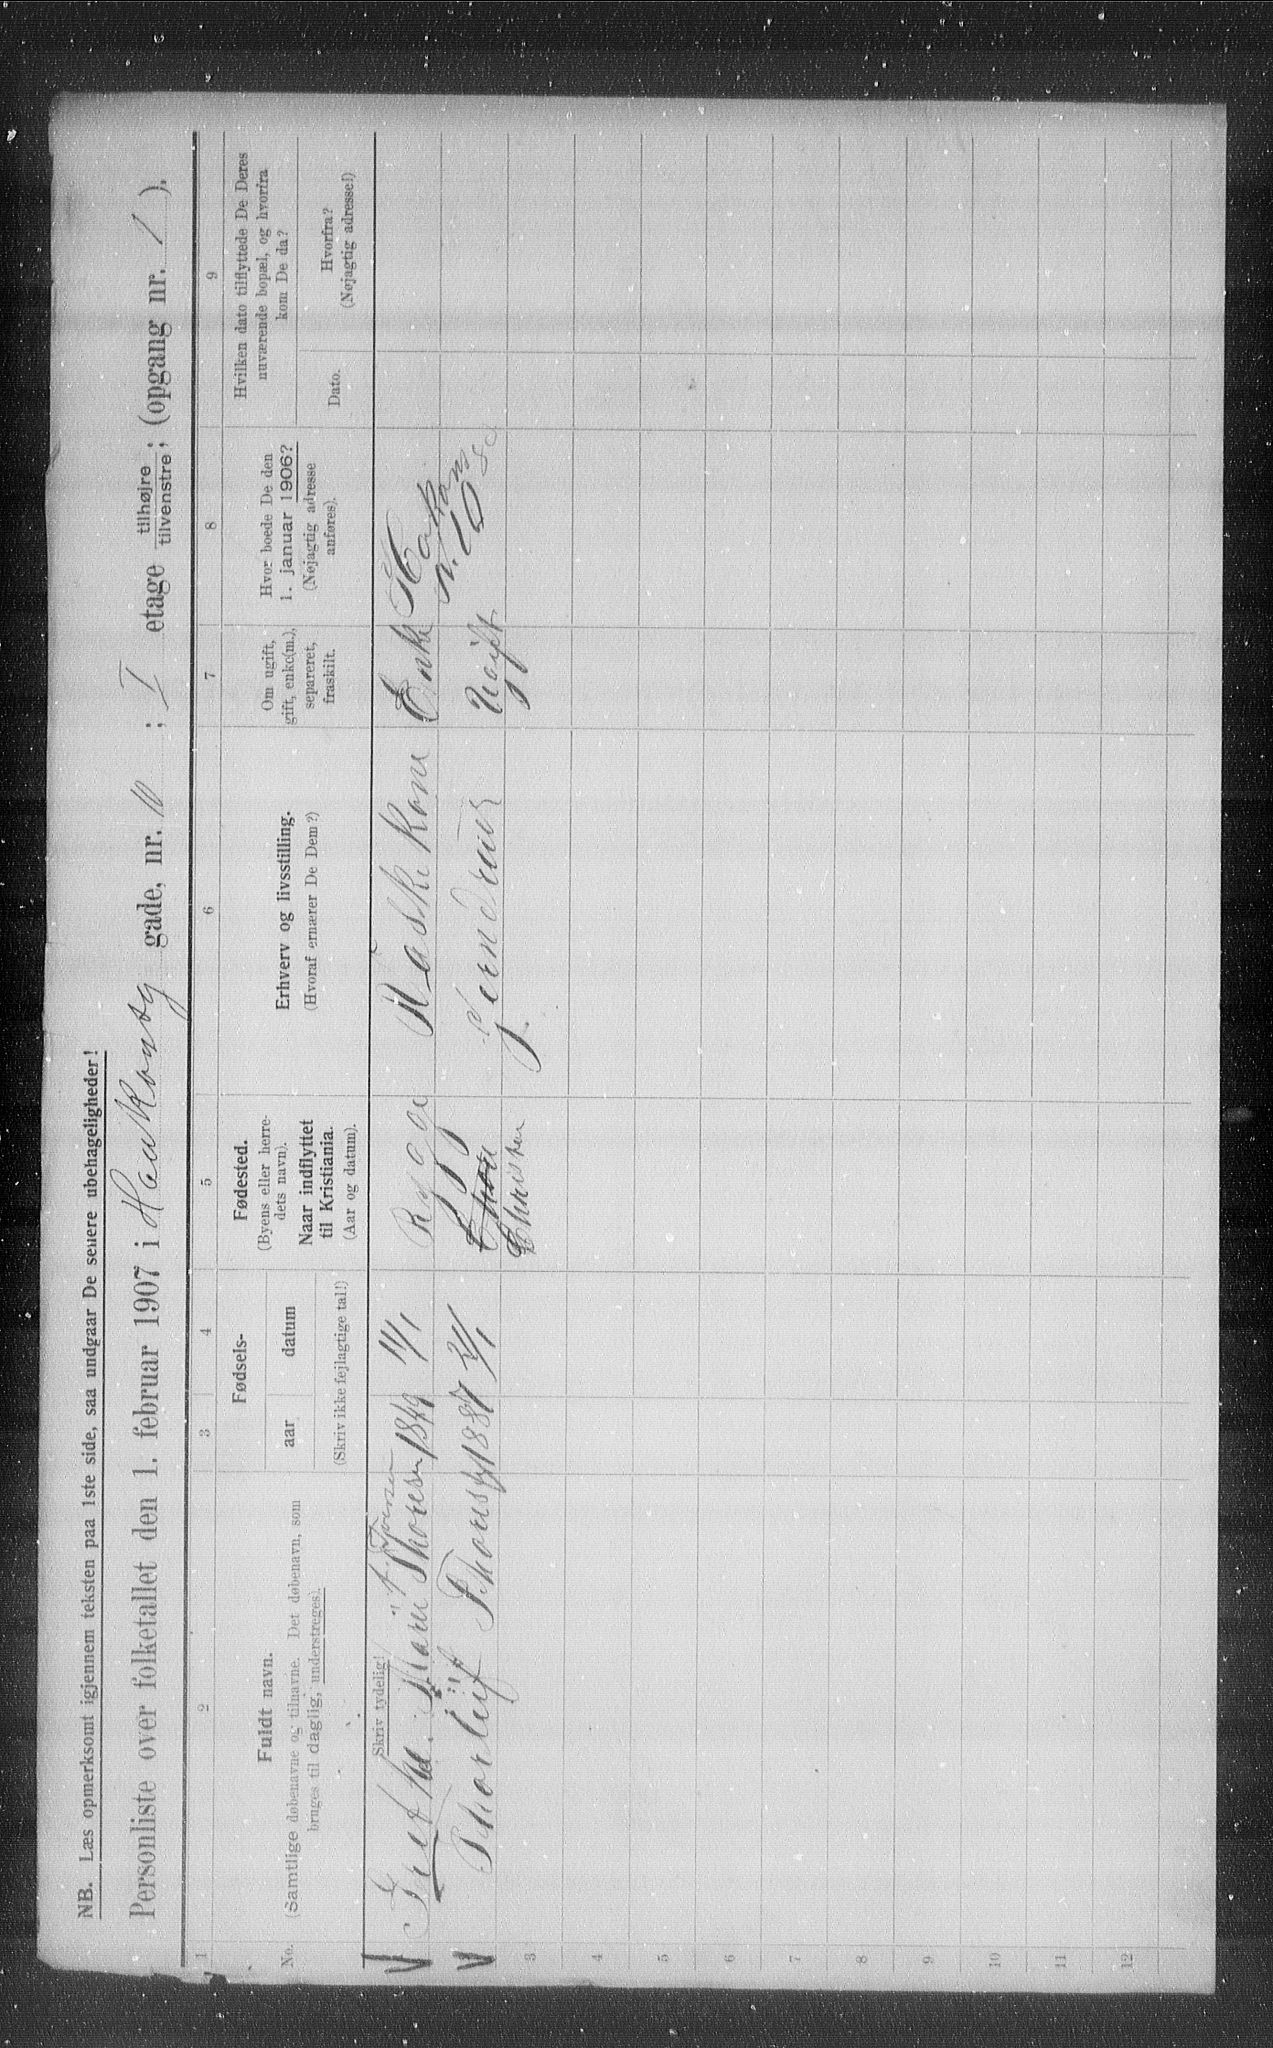 NB. Læs opmerksomt igjennem teksten paa 1ste side, saa undgaar De senere ubehageligheder!
Personliste over folketallet den 1. februar 1907 i Haukonsg gade, nr. 10; I etage tilhøjre tilvenstre; (opgang nr. 1).
1 2 3 4 5 6 7 8 9
No.
Fuldt navn.
(Samtlige døbenavne og tilnavne. Det døbenavn, som
bruges til daglig, understreges).
Fødsels-
aar datum
(Skriv ikke fejlagtige tal!)
Fødested.
(Byens eller herre-
dets navn).
Naar indflyttet
til Kristiania.
(Aar og datum).
Erhverv og livsstilling.
(Hvoraf ernærer De Dem?)
Om ugift,
gift, enke(m.),
separeret,
fraskilt.
Hvor boede De den
1. januar 1906?
(Nøjagtig adresse
anføres).
Hvilken dato tilflyttede De Deres
nuværende bopæl, og hvorfra
kom De da?
Dato.
Hvorfra?
(Nøjagtig adresse!)
Skriv tydelig!
Marie Thoresen 1849 11/1 Rygge Vaskekone Enke Hakons
N. 10
Thorleif Thoresen 1887 21/1 Christian Jerndreier Ugift
3
4
5
6
7
8
9
10
11
12